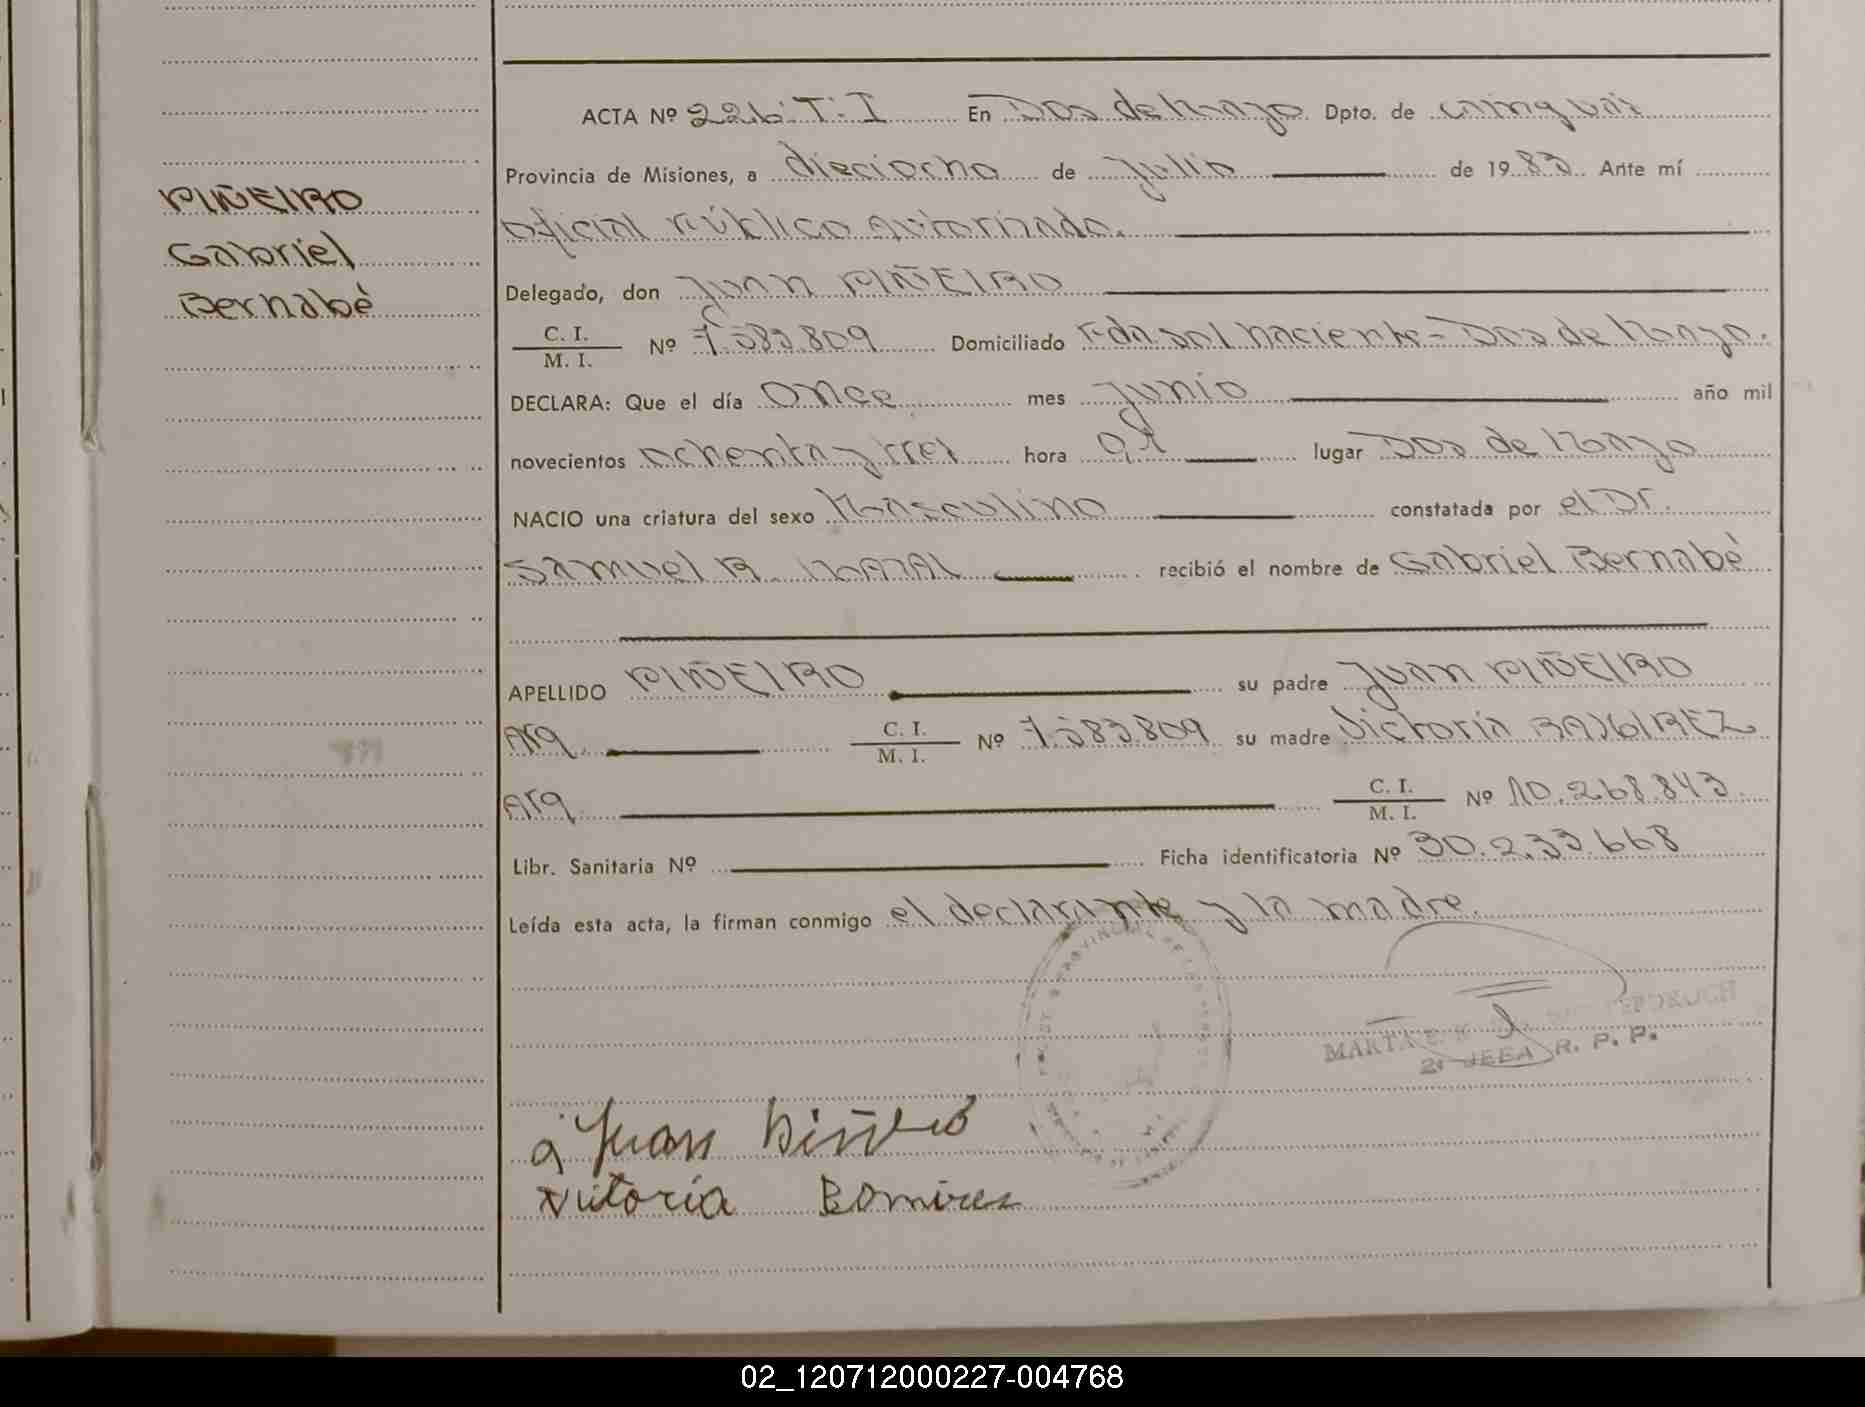 PIÑEIRO
Gabriel
Bernabé
ACTA Nº 226. T. I En Dos de Mayo. Dpto. de Cainguás
Provincia de Misiones, a dieciocho de Julio de 1983. Ante mí
Oficial Público Autorizado.
Delegado, don Juan PIÑEIRO
C. I.
M. I. Nº 7.583.809 Domiciliado Fda. Sol Naciente - Dos de Mayo.
DECLARA: Que el día Once mes Junio año mil
novecientos ochenta y tres hora lugar Dos de Mayo
NACIO una criatura del sexo Masculino constatada por el Dr.
Samuel R. recibió el nombre de Gabriel Bernabé
APELLIDO PIÑEIRO su padre Juan PIÑEIRO
Arg. C. I.
M. I. Nº 7.583.809 su madre Victoria RAMIREZ
Arg. C. I.
M. I. Nº 10.268.843.
Libr. Sanitaria Nº Ficha identificatoria Nº 30.233.668
Leída esta acta, la firman conmigo el declarante y la madre.
MARTA
R. P. P.
Juan Piñeiro
Vitoria Romires
02_120712000227-004768